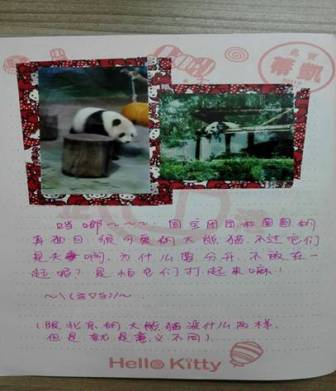 噹啷~~~. 国宝团团和圆圆的
真面目, 很可爱的大熊猫, 不过它们
是夫妻啊, 为什么要分开, 不放在一
起呢? 是怕它们打起来嘛!
(跟北京的大熊猫没什么两样,
但是就是意义不同)
Hello Kitty